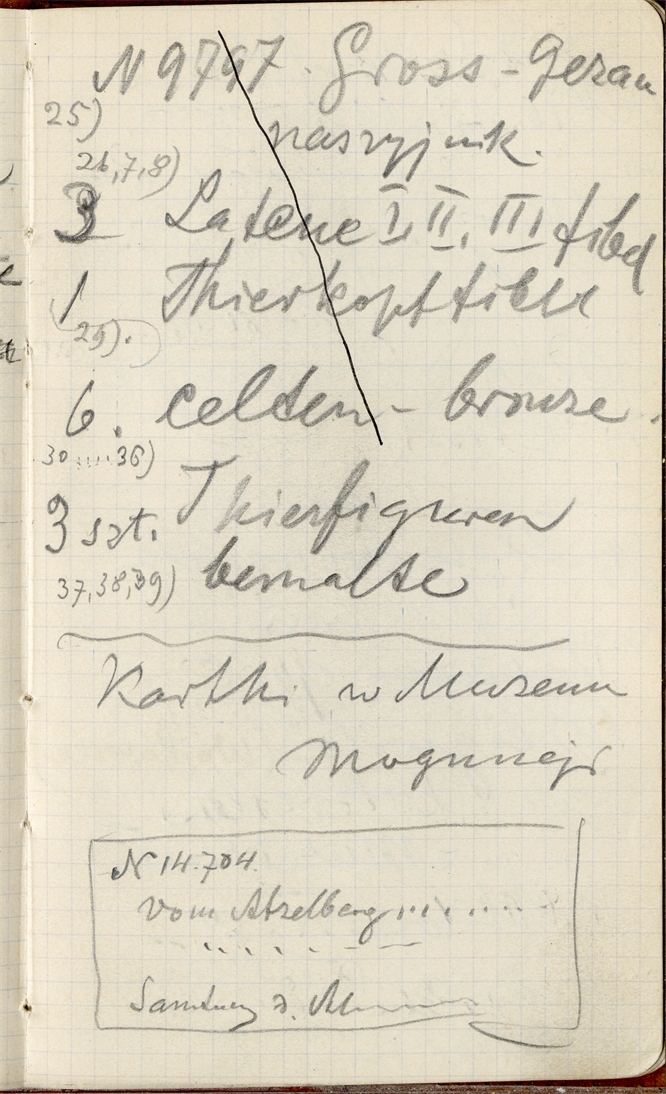 N 9797. Gross-Gerau
25) naszyjnik.
26,7,8)
3 Latene I, II, III, fibel
1 Thierkopffibel
29).
6. celten - bronze.
30.....36)
3 szt. Thierfiguren
37,38,39) bemalte
Kartki w Muzeum
Moguncji
N 14.704.
vom Atzelberg